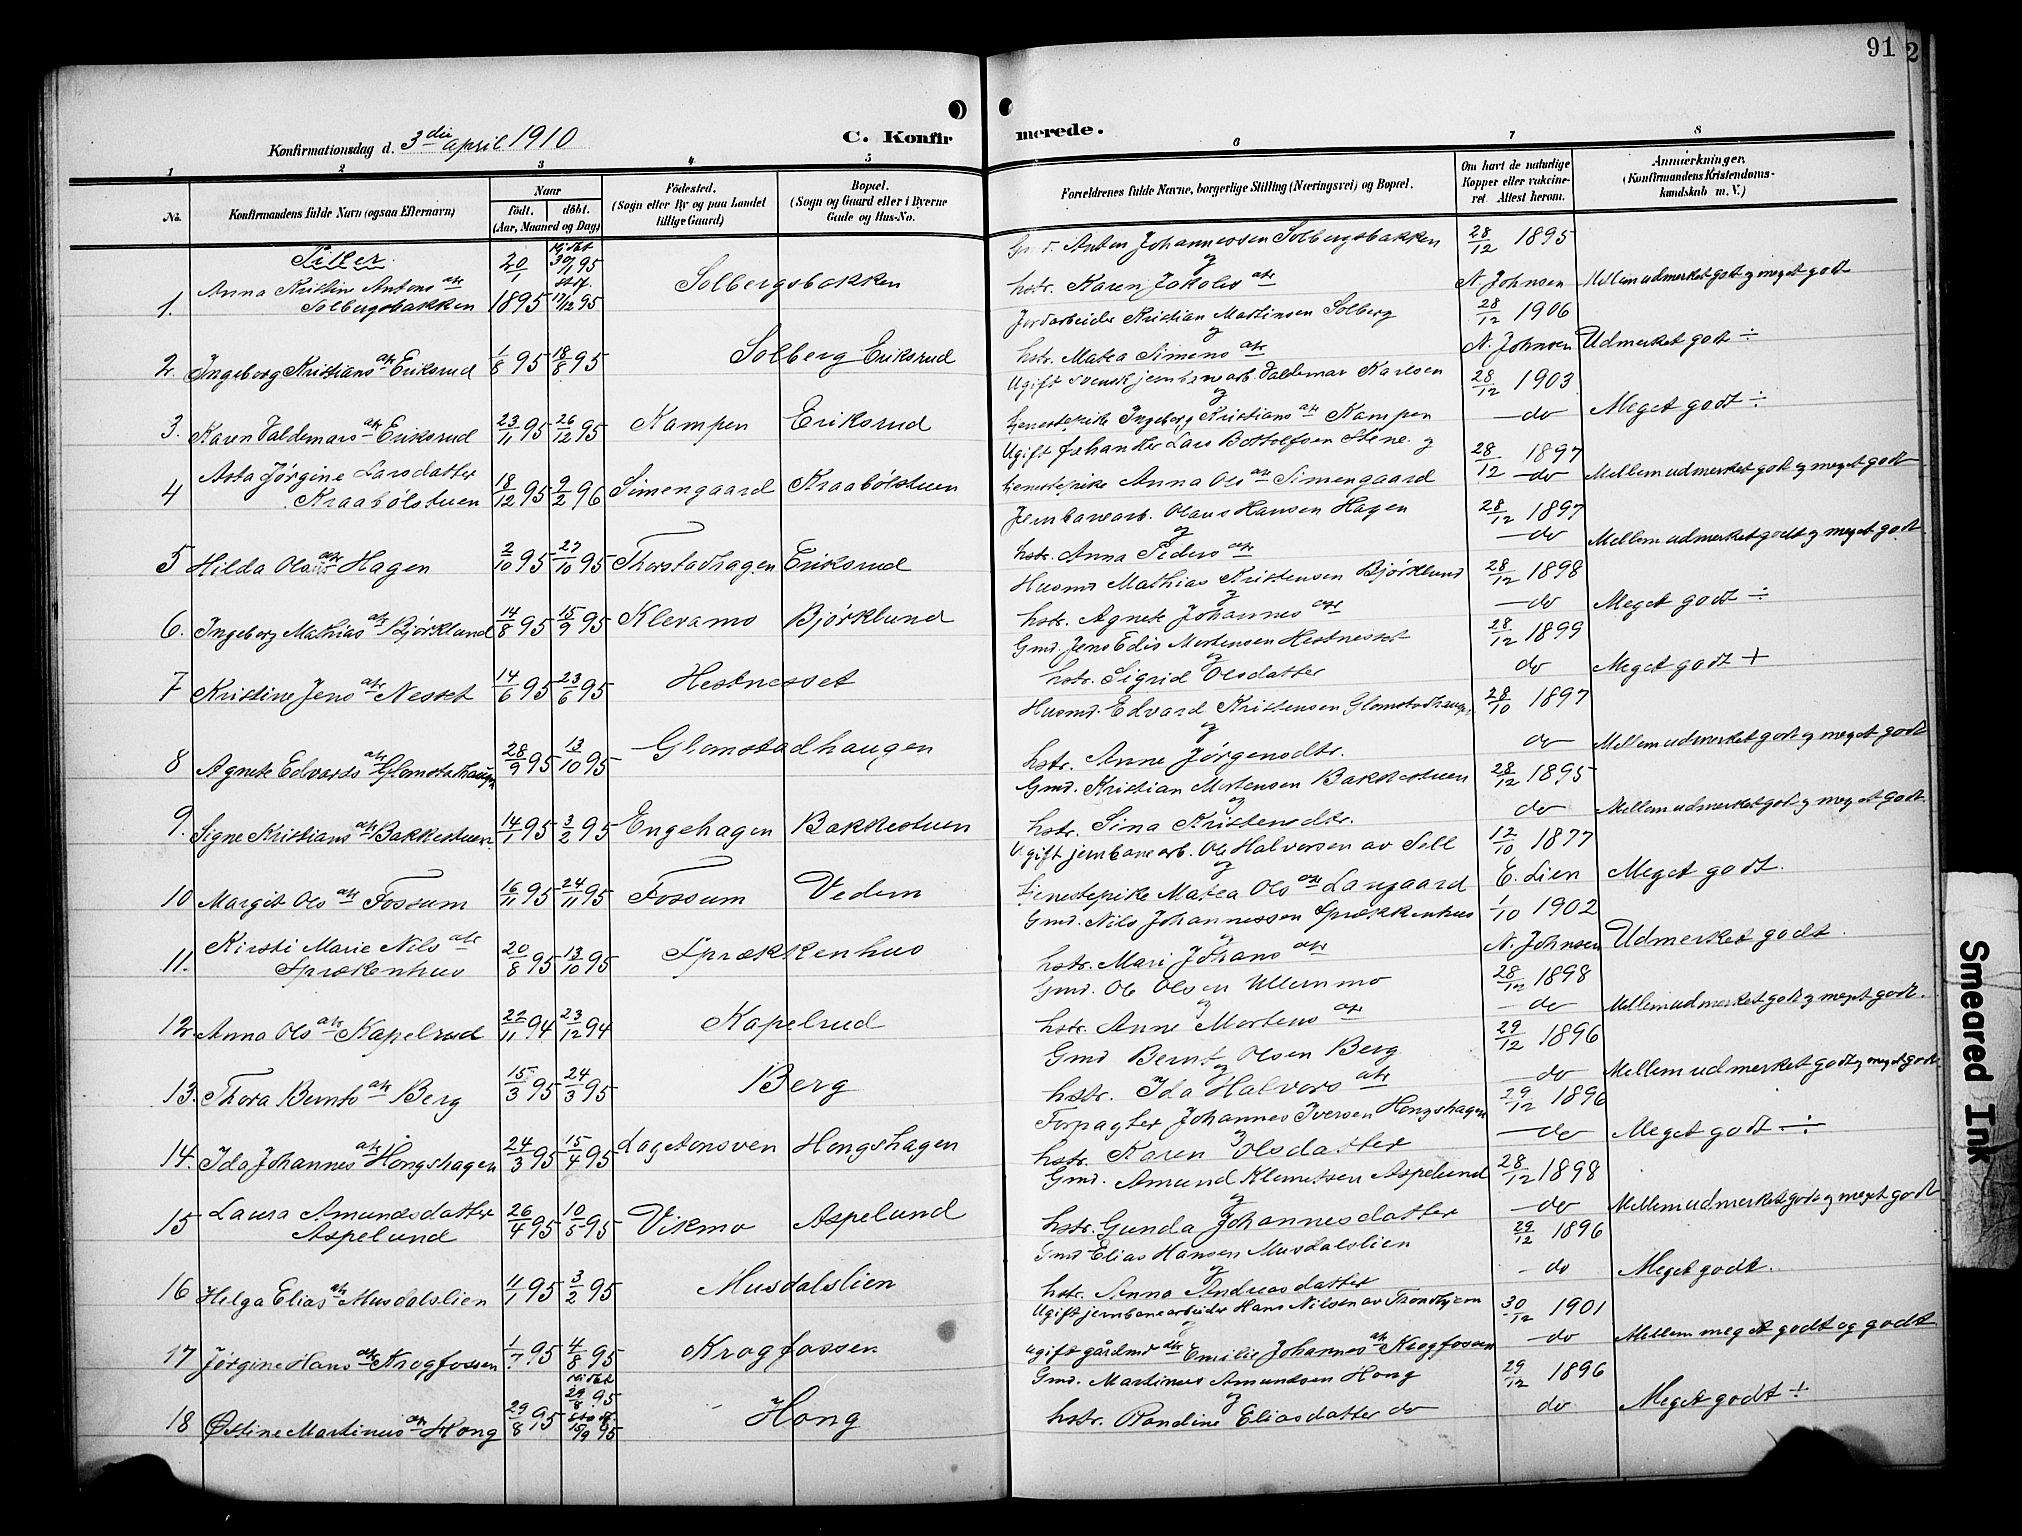 91
2
Konfirmationsdag d. 3die april 1910
C. Konfirmerede.
1 2 3 4 5 6 7 8
No. Konfirmandens fulde Navn (ogsaa Efternavn)
Naar
födt. döbt.
(Aar, Maaned og Dag)
Födested.
(Sogn eller By og paa Landet
tillige Gaard)
Bopæl.
(Sogn og Gaard eller i Byerne
Gade og Hus-No.
Forældrenes fulde Navne, borgerlige Stilling (Næringsvei) og Bopæl.
Om havt de naturlige
Kopper eller vakcine-
ret Attest herom.
Anmærkninger.
(Konfirmandens Kristendoms-
kundskab m. V.)
Piker.
1. Anna Kristine Antons dtr Solbergsbakken 20/1 1895 hj.døbt 30/1 95 stf. 17/12 95 Solbergsbakken
Anton Johannessen Solbergsbakken og 28/12 1895
hstr. Karen Jakobs dtr N. Johnsen Mellem udmerket godt og meget godt
2. Ingeborg Kristians dtr Eriksrud 1/8 95 18/8 95 Solberg Eriksrud
Jordarbeider Kristian Martinsen Solberg og 28/12 1906
hstr. Matea Simens dtr N. Johnsen Udmerket godt ÷
3. Karen Valdemars dtr Eriksrud 23/11 95 26/12 95 Kampen Eriksrud
Ugift svensk jernbanearb. Valdemar Karlsen og 28/12 1903
tjenestepike Ingeborg Kristians dtr Kampen do Meget godt ÷
4 Asta Jørgine Larsdatter Kraabølstuen 18/12 95 9/2 96 Simengaard Kraabølstuen
Ugift Lars Bottolfsen Stene og 28/12 1897
tjenestepike Anna Ols dtr Simengaard do Mellem udmerket godt og meget godt
5 Hilda Ols dtr Hagen 2/10 95 27/10 95 Thorstadhagen Eriksrud
Jernbanearb. Olaus Hansen Hagen og 28/12 1897
hstr. Anna Peders dtr do Mellem udmerket godt og meget godt
6. Ingeborg Mathias dtr Bjørklund 14/8 95 15/9 95 Klevamo Bjørklund
Husmd Mathias Kristensen Bjørklund og 28/12 1898
hstr. Agnete Johannes dtr do Meget godt ÷
7 Kristine Jens dtr Nesset 14/6 95 23/6 95 Hestnesset
Gmd. Jens Edis Mortensen Hestnesset og 28/12 1899
hstr. Sigrid Olsdatter do Meget godt +
8 Agnete Edvards dtr Glomstadhaugen 28/9 95 13/10 95 Glomstadhaugen
Husmd. Edvard Kristensen Glomstadhaugen og 28/10 1897
hstr. Anne Jørgensdtr. do Mellem udmerket godt og meget godt
9. Signe Kristians dtr Bakkestuen 14/1 95 3/2 95 Engehagen Bakkestuen
Gmd. Kristian Mortensen Bakkestuen og 28/12 1895
hstr. Sina Kristensdtr. do Mellem udmerket godt og meget godt.
10 Margit Ols dtr Fossum 16/11 95 24/11 95 Fossum Vedem
Ugift jernbanearb. Ole Halvorsen av Sell og 12/10 1877
tjenestepike Matea Ols dtr Langaard E. Lien Meget godt.
11. Kirsti Marie Nils dtr Sprækkenhus 20/8 95 13/10 95 Sprækkenhus
Gmd. Nils Johannessen Sprækkenhus og 1/10 1902
hstr. Mari Johans dtr N. Johnsen Udmerket godt.
12 Anna Ols dtr Kapelrud 22/11 94 23/12 94 Kapelrud
Gmd. Ole Olsen Ullemmo og 28/12 1898
hstr. Anne Mortens dtr do Mellem udmerket godt og meget godt.
13. Thora Bernts dtr Berg 15/3 95 24/3 95 Berg
Gmd Bernt Olsen Berg og 29/12 1896
hstr. Ida Halvors dtr do Mellem udmerket godt og meget godt
14. Ida Johannes dtr Hongshagen 24/3 95 15/4 95 Hongshagen
Forpagter Johannes Iversen Hongshagen og 29/12 1896
hstr. Karen Olsdatter do Meget godt ÷
15 Laura Amundsdatter Aspelund 26/4 95 10/5 95 Vikmo Aspelund
Gmd. Amund Klemetsen Aspelund og 28/12 1898
hstr. Gunda Johannesdatter do Mellem udmerket godt og meget godt
16 Helga Elias dtr Musdalslien 11/1 95 3/2 95 Musdalslien
Gmd Elias Hansen Musdalslien og 29/12 1896
hstr. Anna Andreasdatter do Meget godt.
17 Jørgine Hans dtr Krogfossen 1/7 95 4/8 95 Krogfossen
Ugift jernbanearbeider Hans Nilsen av Trondhjem 30/12 1901
ugift gårdmd dtr Emilie Johannes dtr Krogfossen do Mellem meget godt og godt
18 Østine Martinus dtr Hong 29/8 95 hj.døbt 29/8 95 stadf. 15/9 95 Hong
Gmd. Martinus Amundsen Hong og 29/12 1896
hstr. Randine Eliasdatter do do Meget godt ÷
Smeared Ink